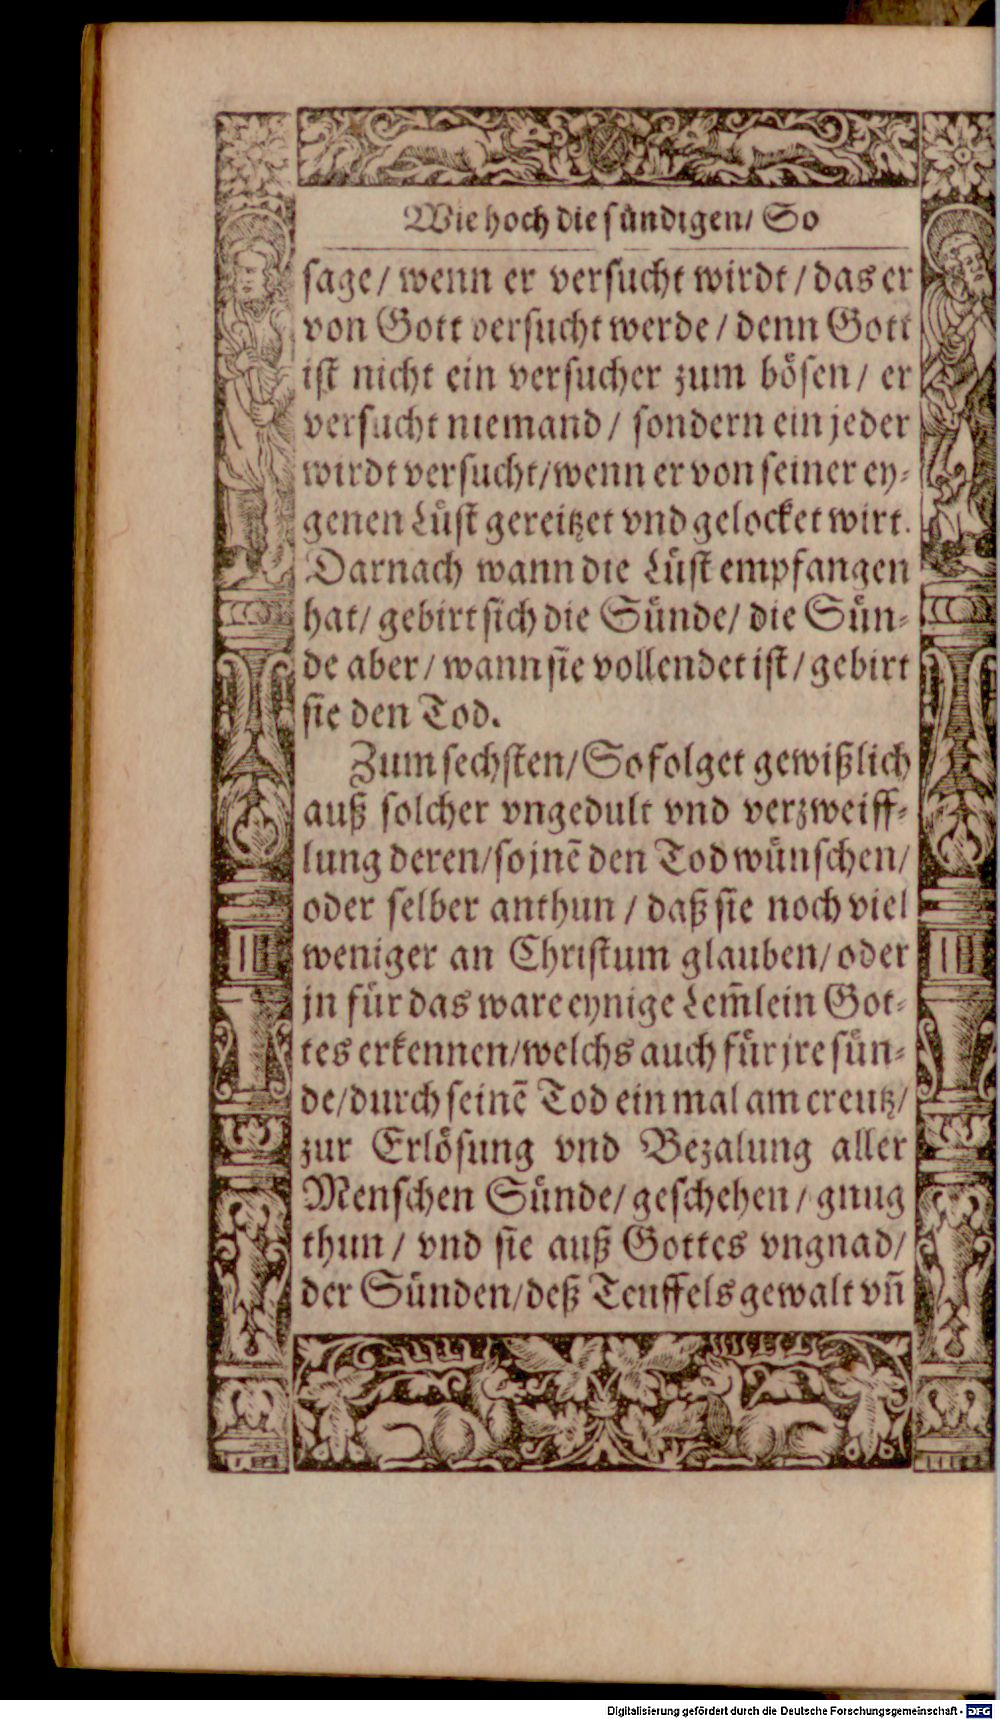 Wie hoch die sündigen/ So
sage/ wenn er versucht wirdt/ das er
von Gott versucht werde/ denn Gott
ist nicht ein versucher zum bösen/ er
versucht niemand/ sondern ein jeder
wirdt versucht/ wenn er von seiner ey⸗
genen Lüst gereitzet vnd gelocket wirt.
Darnach wann die Lüst empfangen
hat/ gebirt sich die Sünde/ die Sün⸗
de aber/ wann sie vollendet ist/ gebirt
sie den Tod.
Zum sechsten/ So folget gewißlich
auß solcher vngedult vnd verzweiff⸗
lung deren/ so jnē den Tod wünschen/
oder selber anthun/ daß sie noch viel
weniger an Christum glauben/ oder
jn für das ware eynige Lem̃lein Got⸗
tes erkennen/ welchs auch für jre sün⸗
de/ durch seinē Tod ein mal am creutz/
zur Erlösung vnd Bezalung aller
Menschen Sünde/ geschehen/ gnug
thun/ vnd sie auß Gottes vngnad/
der Sünden/ deß Teuffels gewalt vn̄
Digitalisierung gefördert durch die Deutsche Forschungsgemeinschaft - DFG